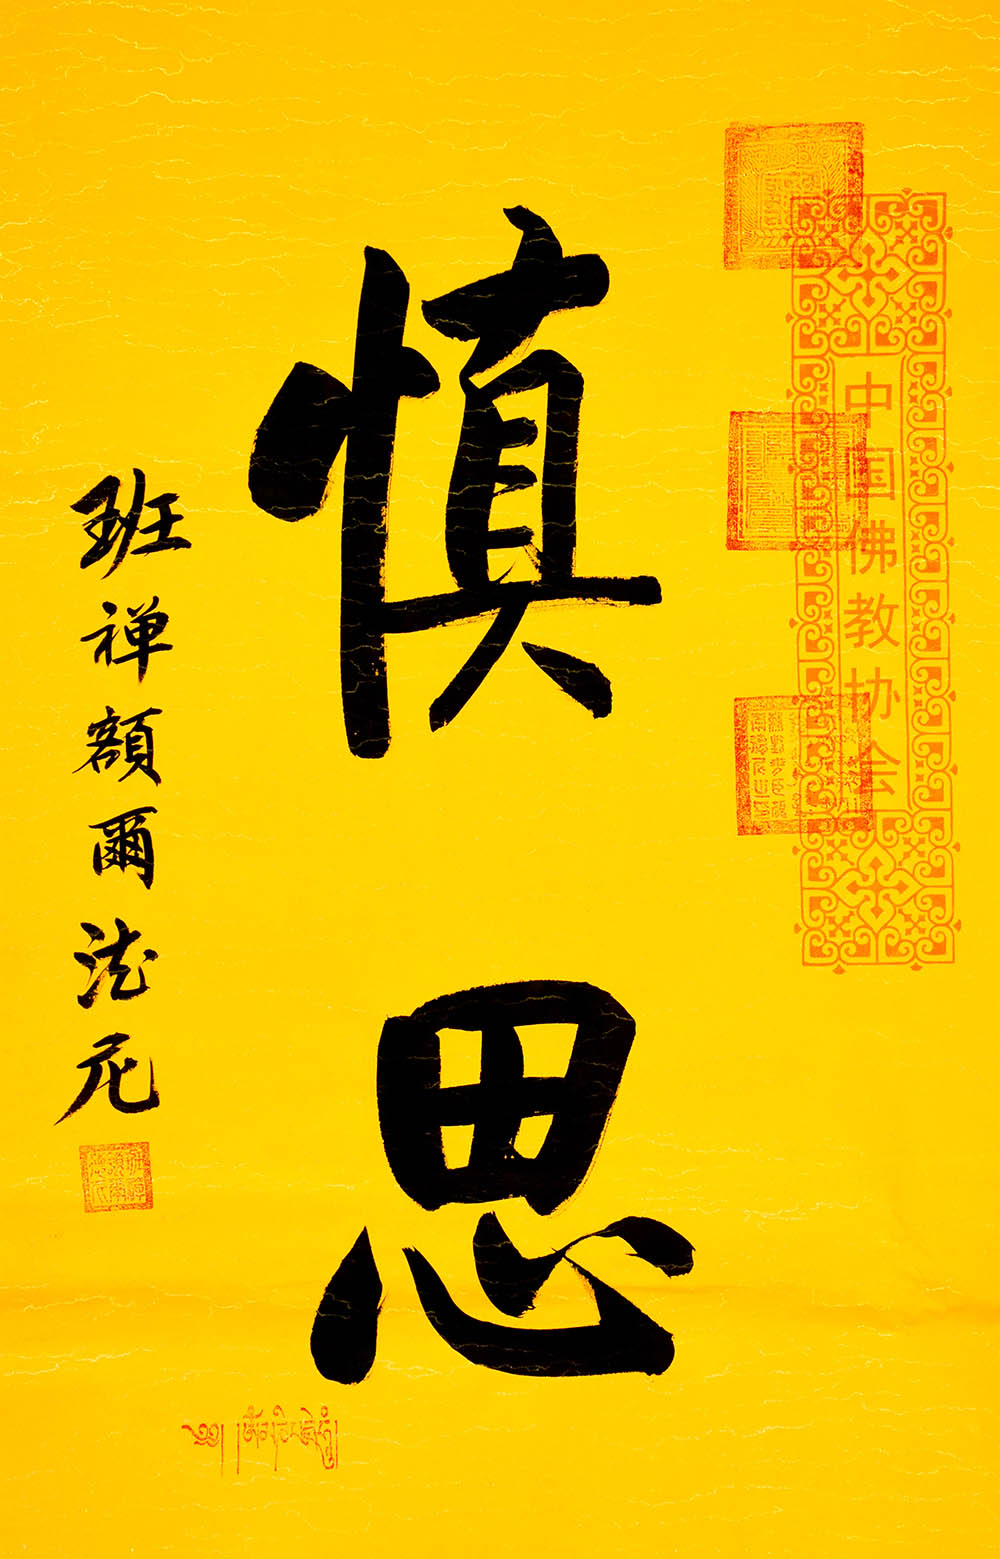 中国佛教协会
慎思
班禅額爾法尼